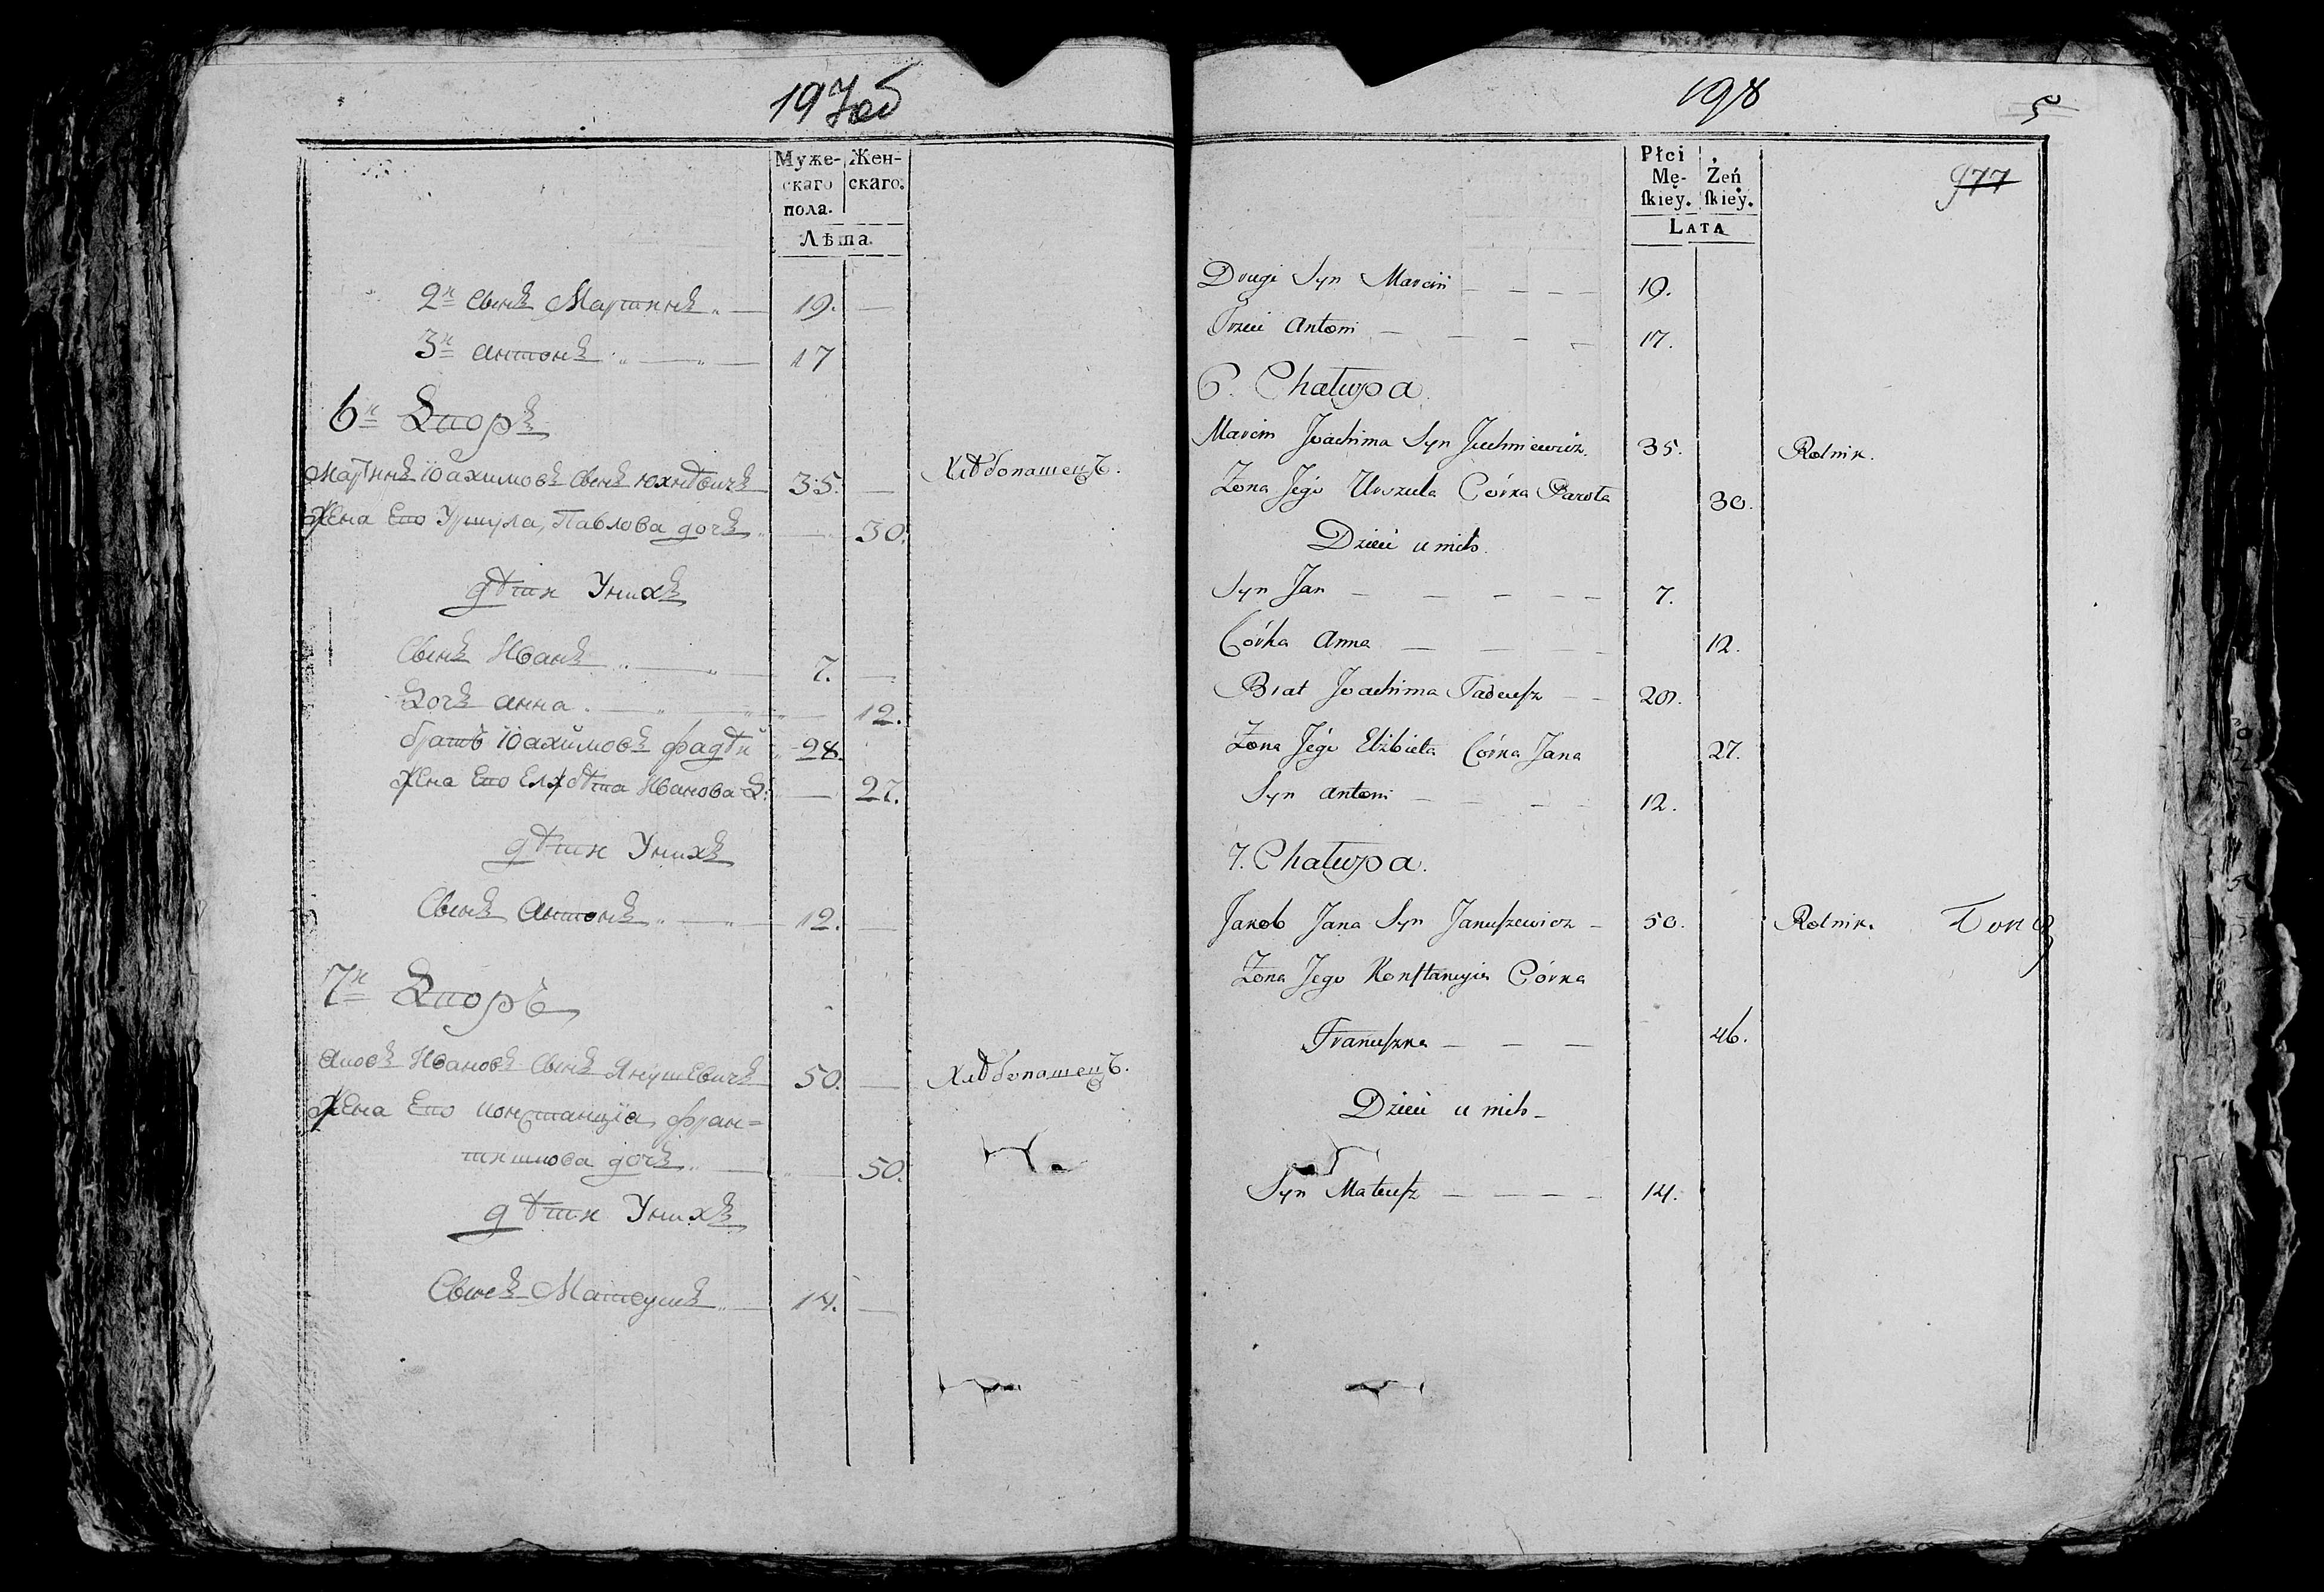 197об
Муже- Жен-
скаго скаго.
пола.
Лѣта.
2й Сынъ Мартинъ 19. —
3й Антонъ 17
6й Дворъ
Мартинъ Юахимовъ Сынъ Юхнѣвичъ 35. — Хлѣбопашецъ.
Жена Его Уршула, Павлова дочъ — 30.
дѣти Унихъ
Сынъ Иванъ 7. —
Дочъ Анна — 12.
братъ Юахимовъ Фадѣй 28.
Жена Его Елжбѣта Иванова Д: — 27.
дѣти Унихъ
Сынъ Антонъ 12. —
7й Дворъ
Яковъ Ивановъ Сынъ Янушевичъ 50. — Хлѣбопашецъ.
Жена Его Констанція, Фран=
тишкова дочъ — 50.
дѣти Унихъ
Сынъ Матеушъ 14. —
198
5
977
Płci Żeń
Mę- ſkiey.
ſkiey.
LATA
Drugi Syn Marcin — — — — 19.
Trzeci Antoni — — — — 17.
6. Chałupa.
Marcin Joachima Syn Juchniewicz. 35. Rolnik.
Żona Jego Urszula Córka Pawła 30.
Dzieci u nich.
Syn Jan — — — — — 7.
Córka Anna — — — 12.
Brat Joachima Tadeuſz — — 28.
Żona Jego Elżbieta Córka Jana 27.
Syn Antoni — — — — 12.
7. Chałupa.
Jakob Jana Syn Januſzewicz — 50. Rolnik.
Żona Jego Konſtancyia Córka
Franciſzka — — — 46.
Dzieci u nich —
Syn Mateuſz — — — — 14.